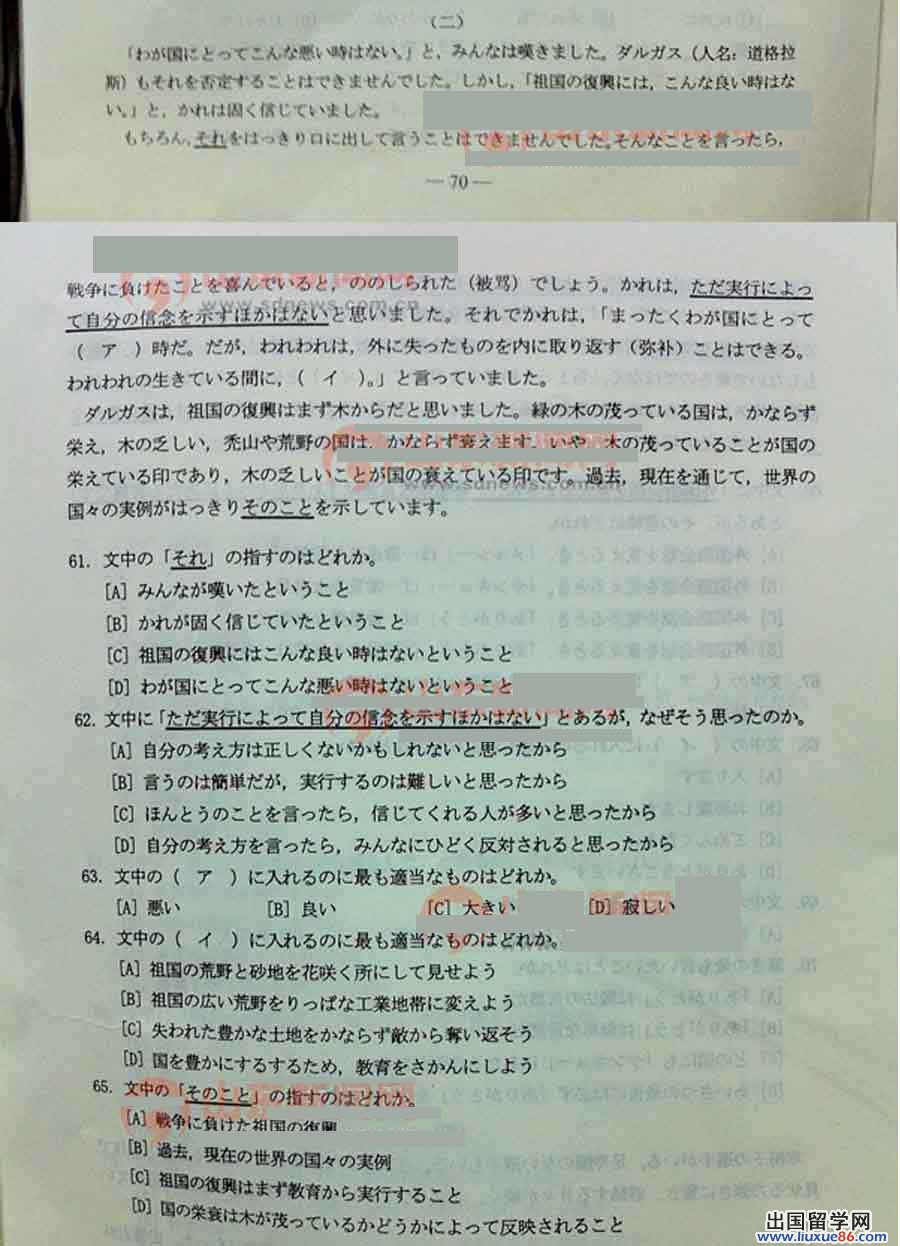 (二)
「わが国にとってこんな悪い時はない。」と，みんなは嘆きました。ダルガス（人名：道格拉
斯）もそれを否定することはできませんでした。しかし，「祖国の復興には，こんな良い時はな
い。」と，かれは固く信じていました。
もちろん，それをはっきり口に出して言うことはできませんでした。そんなことを言ったら，
— 70 —
戦争に負けたことを喜んでいると，ののしられた（被骂）でしょう。かれは，ただ実行によっ
www.sdnews.com.cn
て自分の信念を示すほかはないと思いました。それでかれは，「まったくわが国にとって
（ ア ）時だ。だが，われわれは，外に失ったものを内に取り返す（弥补）ことはできる。
われわれの生きている間に，（ イ ）。」と言っていました。
ダルガスは，祖国の復興はまず木からだと思いました。緑の木の茂っている国は，かならず
栄え，木の乏しい，禿山や荒野の国は，かならず衰えます。いや，木の茂っていることが国の
栄えている印であり，木の乏しいことが国の衰えている印です。過去，現在を通じて，世界の
www.sdnews.com.cn
国々の実例がはっきりそのことを示しています。
61. 文中の「それ」の指すのはどれか。
[A] みんなが嘆いたということ
[B] かれが固く信じていたということ
[C] 祖国の復興にはこんな良い時はないということ
[D] わが国にとってこんな悪い時はないということ
62. 文中に「ただ実行によって自分の信念を示すほかはない」とあるが，なぜそう思ったのか。
[A] 自分の考え方は正しくないかもしれないと思ったから
[B] 言うのは簡単だが，実行するのは難しいと思ったから
[C] ほんとうのことを言ったら，信じてくれる人が多いと思ったから
[D] 自分の考え方を言ったら，みんなにひどく反対されると思ったから
63. 文中の（ ア ）に入れるのに最も適当なものはどれか。
[A] 悪い [B] 良い [C] 大きい [D] 寂しい
64. 文中の（ イ ）に入れるのに最も適当なものはどれか。
[A] 祖国の荒野と砂地を花咲く所にして見せよう
[B] 祖国の広い荒野をりっぱな工業地帯に変えよう
[C] 失われた豊かな土地をかならず敵から奪い返そう
[D] 国を豊かにするするため，教育をさかんにしよう
65. 文中の「そのこと」の指すのはどれか。
[A] 戦争に負けた祖国の復興
[B] 過去，現在の世界の国々の実例
[C] 祖国の復興はまず教育から実行すること
[D] 国の栄衰は木が茂っているかどうかによって反映されること
出国留学网
www.liuxue86.com